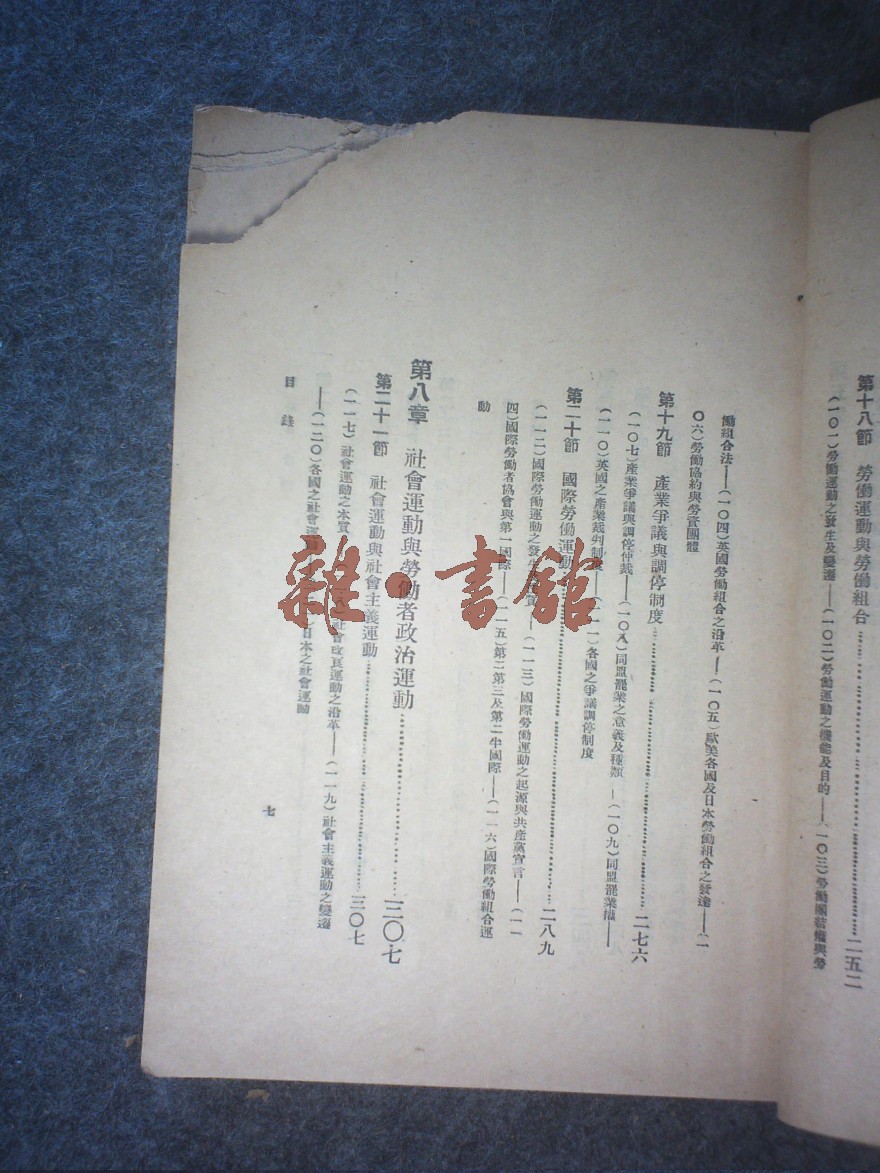 第十八節　勞働運動與勞働組合……二五二
（一〇一）勞働運動之發生及變遷——（一〇二）勞働運動之機能及目的——（一〇三）勞働團結權與勞
働組合法——（一〇四）英國勞働組合之沿革——（一〇五）歐美各國及日本勞働組合之發達——（一
〇六）勞働協約與勞資團體
第十九節　產業爭議與調停制度……二七六
（一〇七）產業爭議與調停仲裁——（一〇八）同盟罷業之意義及種類——（一〇九）同盟罷業權——
（一一〇）英國之產業裁判制度——（一一一）各國之爭議調停制度
第二十節　國際勞働運動……二八九
（一一二）國際勞働運動之發生——（一一三）國際勞働運動之起源與共產黨宣言——（一一
四）國際勞働者協會與第一國際——（一一五）第二第三及第二半國際——（一一六）國際勞働組合運
動
第八章　社會運動與勞働者政治運動……三〇七
第二十一節　社會運動與社會主義運動……三〇七
（一一七）社會運動之本質——社會改良運動之沿革——（一一九）社會主義運動之變遷
——（一二〇）各國之社會運動——日本之社會運動
目錄
七
雜·書館